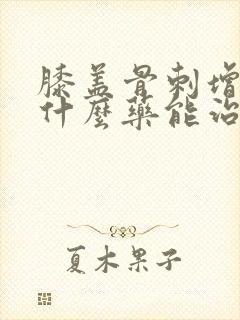 膝盖骨刺增
什麼藥能治
夏木果子